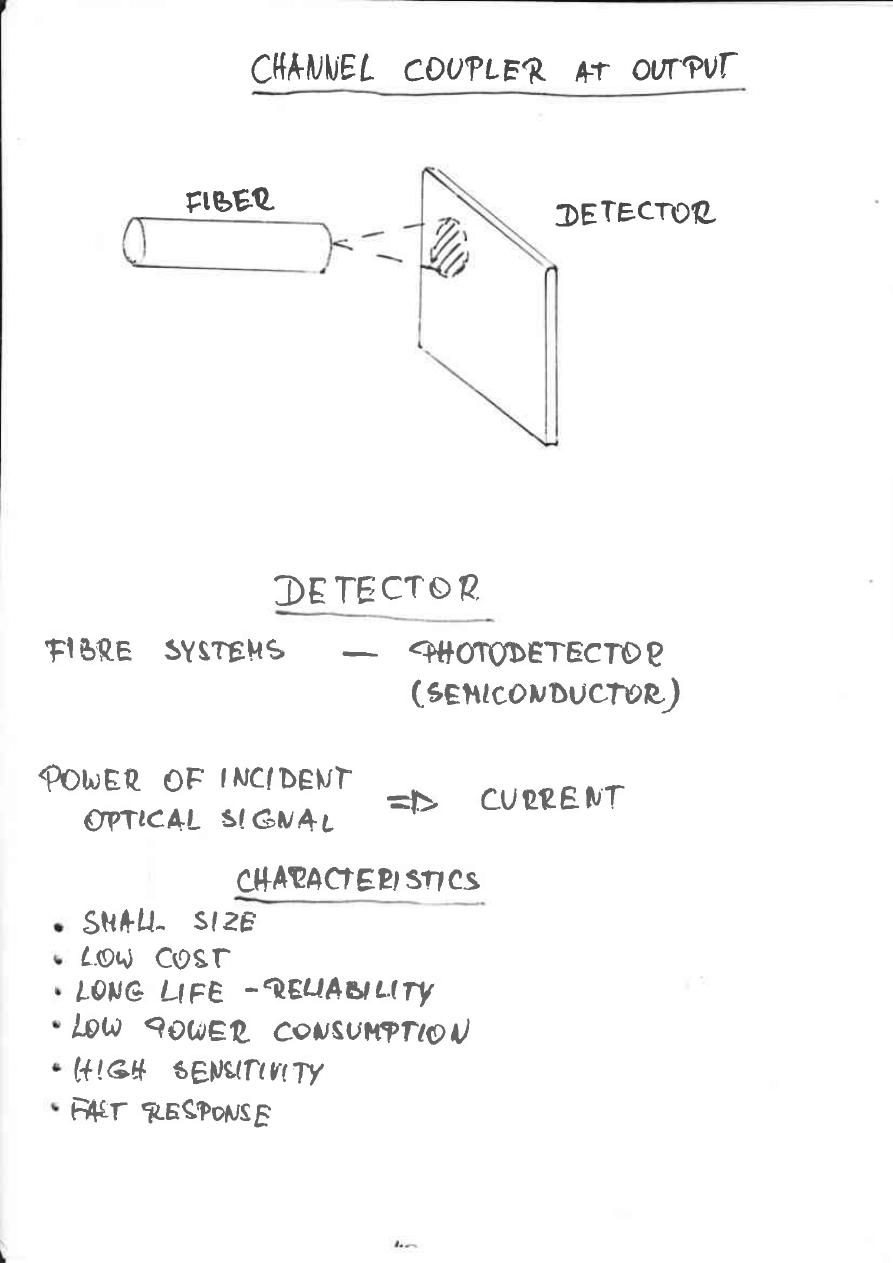 CHANNEL COUPLER AT OUTPUT
FIBER
DETECTOR
DETECTOR
FIBRE SYSTEMS — PHOTODETECTOR
(SEMICONDUCTOR)
POWER OF INCIDENT
OPTICAL SIGNAL ⇒ CURRENT
CHARACTERISTICS
• SMALL SIZE
• LOW COST
• LONG LIFE - RELIABILITY
• LOW POWER CONSUMPTION
• HIGH SENSITIVITY
• FAST RESPONSE